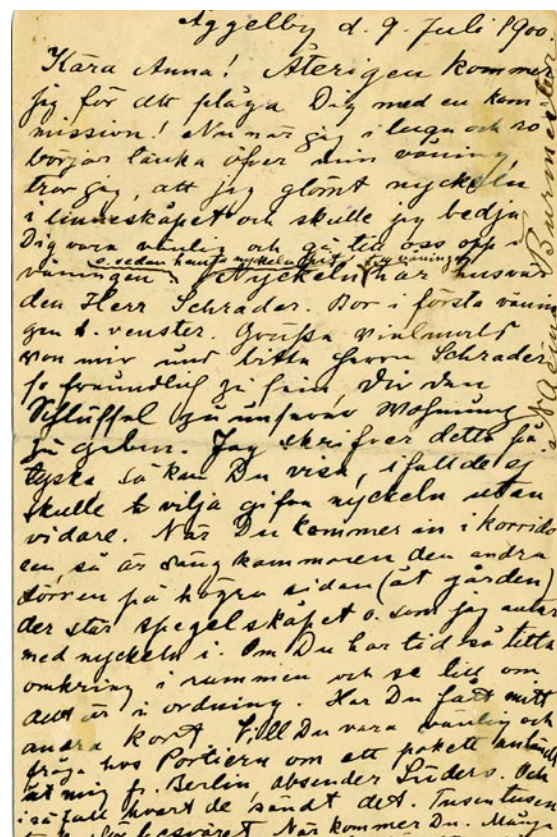 Åggelby d. 9. Juli 1900.
Kära Anna! Återigen kommer
jag för att plåga Dig med en kom
mission! Nu när jag i lugn och ro
börjar tänka öfver min våning,
tror jag, att jag glömt nyckeln
i linneskåpet och skulle jag bedja
Dig vara vänlig och gå till oss opp i
o. sedan hämta nyckeln dit
våningen. Nyckeln har husvär
den Herr Schrader. Bor i första vånin
gen t. venster. Grüße vielmals
von mir und bitte Herrn Schrader
so freundlich zu sein, Dir den
Schlüssel zu unserer Wohnung
zu geben. Jag skrifver detta på
tyska, så kan Du visa, ifall de ej
skulle vilja gifva nyckeln utan
vidare. När Du kommer in i korrido
ren, så är sängkammaren den andra
dörren på högra sidan (åt gården)
der står spegelskåpet o. som jag antar
med nyckeln i. Om Du har tid så titta
omkring i rummen och se till om
allt är i ordning. Har Du fått mitt
andra kort. Vill Du vara vänlig och
fråga hos Portiern om ett pakett anländt
åt mig fr. Berlin, absender Lüders. Och
i så fall hvart de sändt det. Tusen tusen
besväret. När kommer Du. Mång